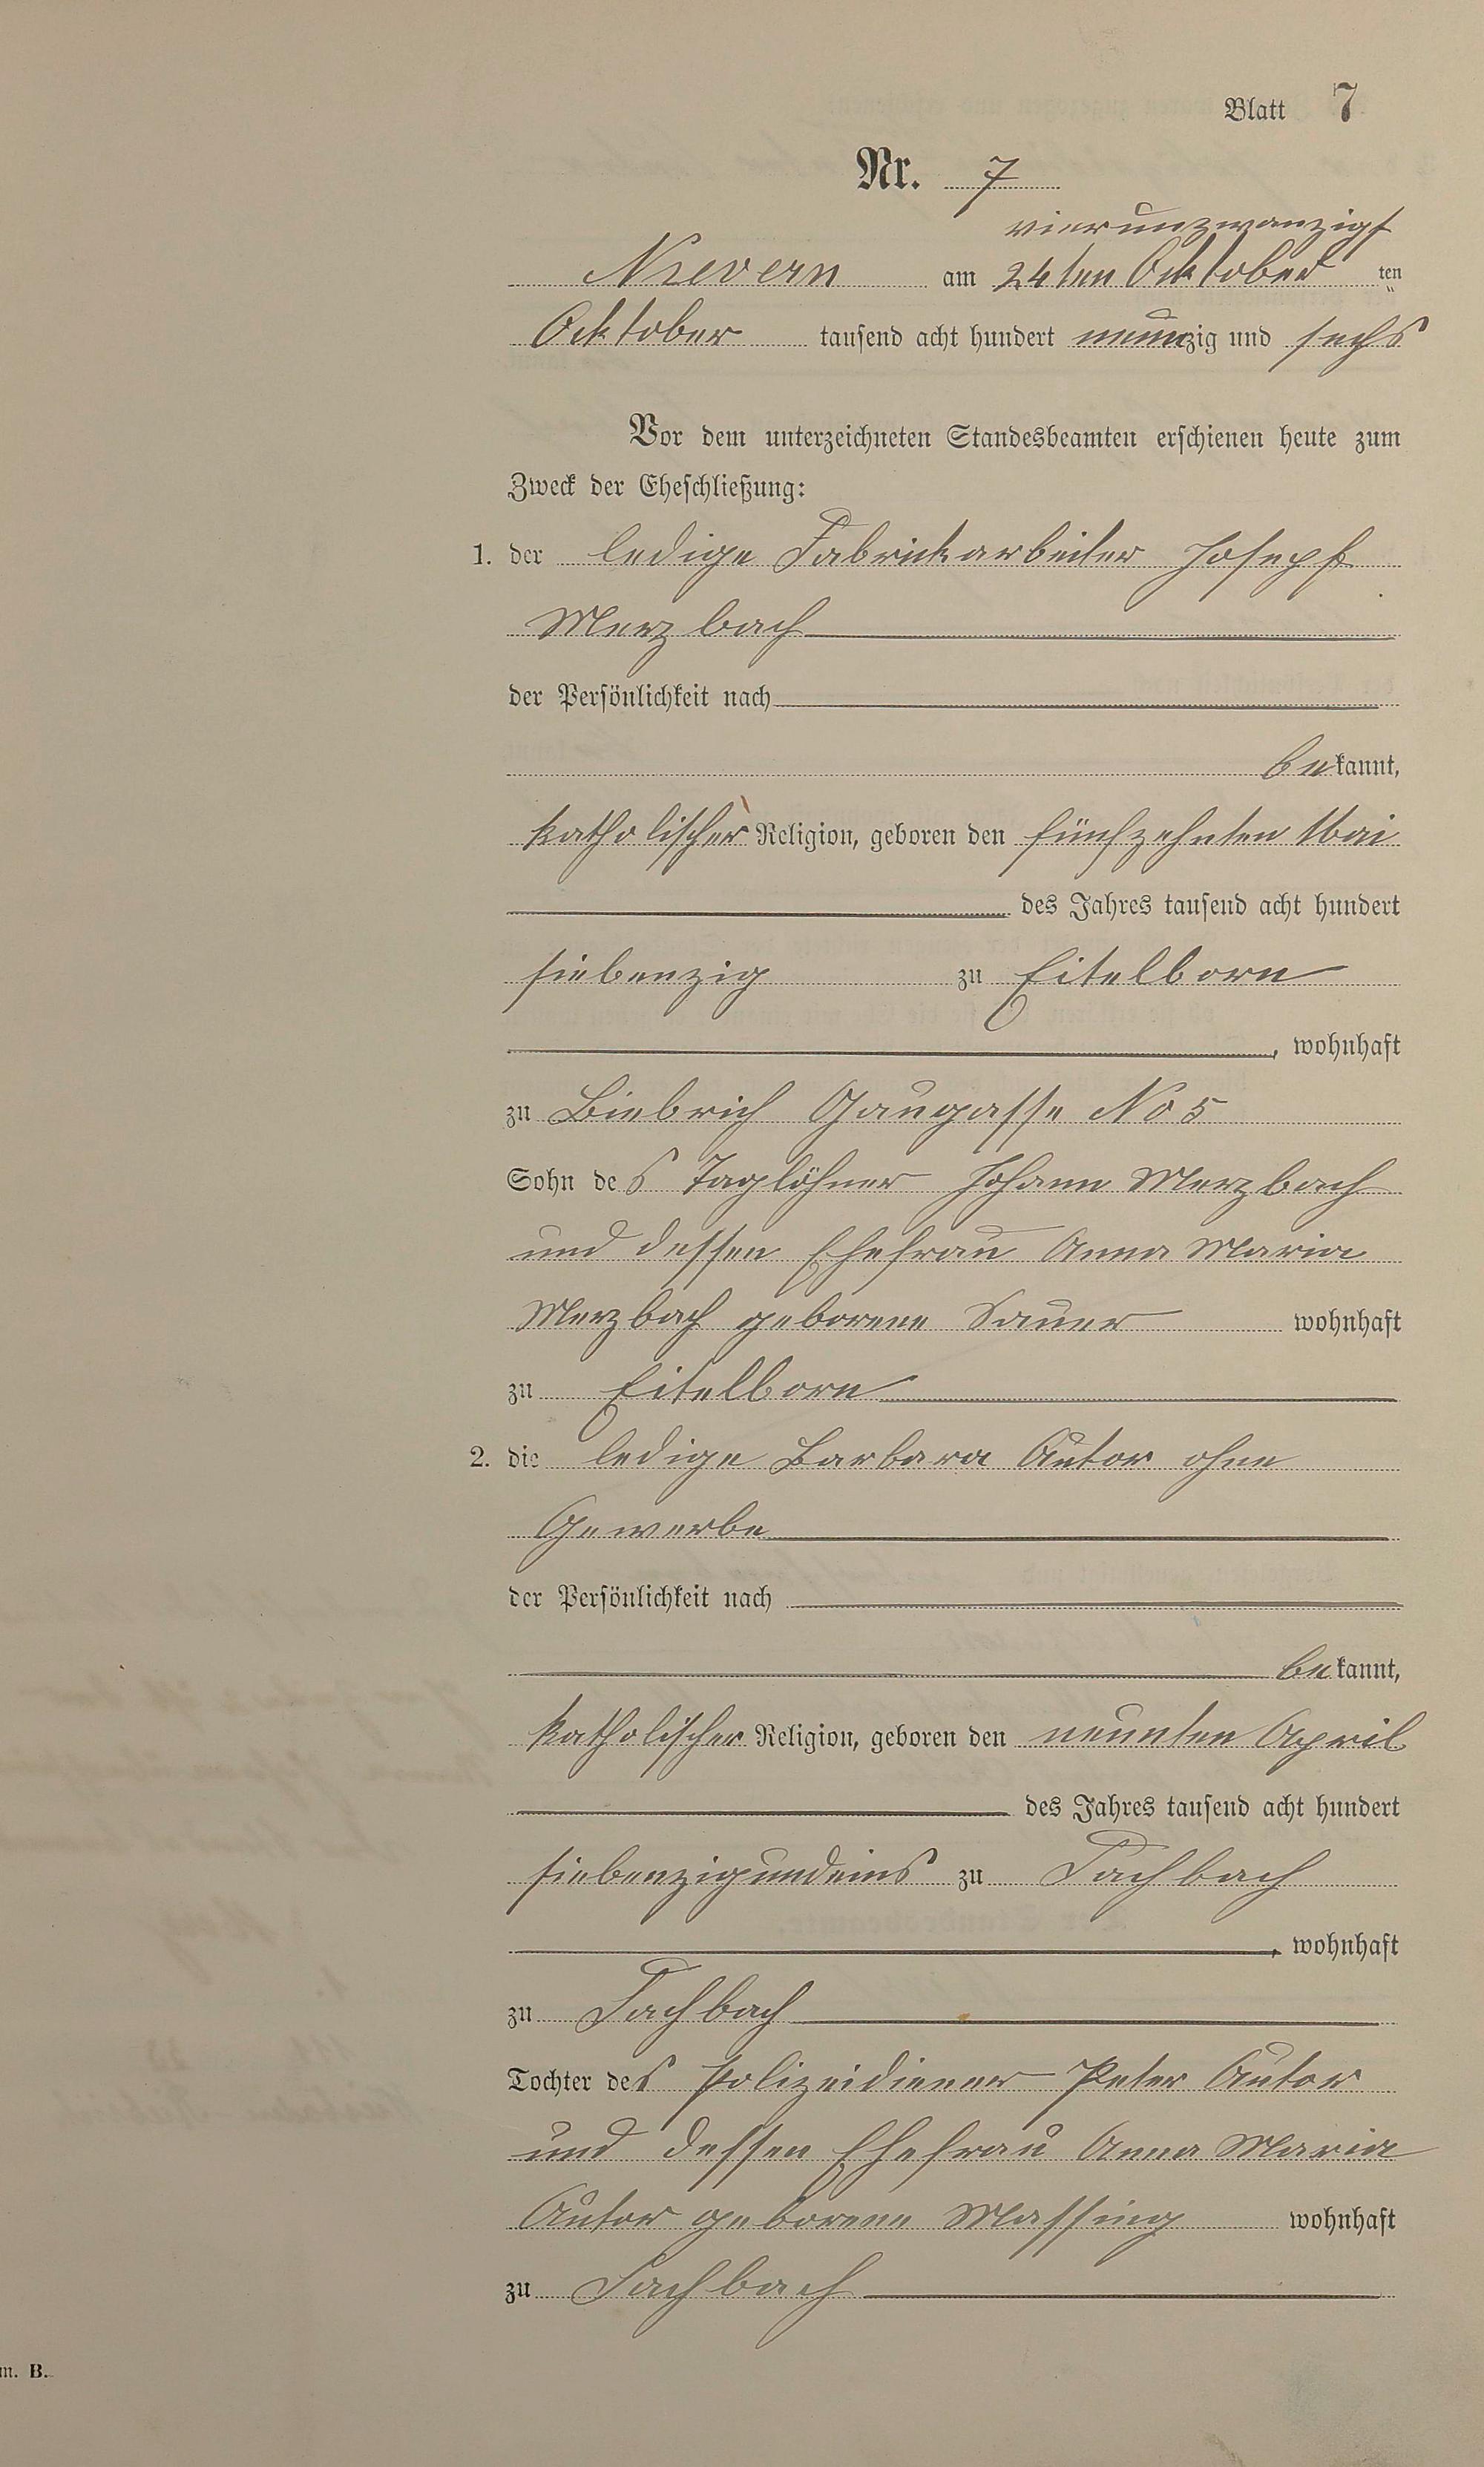 Blatt 7
Nr. 7
vierunzwanzigst
Nievern am 24ten Ocktober ten
Ocktober tausend acht hundert neunzig und sechs
Vor dem unterzeichneten Standesbeamten erschienen heute zum
Zweck der Eheschließung:
1. der ledige Fabrickarbeiter Josepf
Merzbach
der Persönlichkeit nach
bekannt,
katholischer Religion, geboren den fünfzehnten Mai
des Jahres tausend acht hundert
siebenzig zu Eitelborn
, wohnhaft
zu Biebrich Gaugasse No 5
Sohn des Taglöhner Johann Merzbach
und dessen Ehefrau Anna Maria
Merzbach geborene Sauer wohnhaft
zu Eitelborn
2. die ledige Barbara Autor ohne
Gewerbe
der Persönlichkeit nach
bekannt,
katholischer Religion, geboren den neunten April
des Jahres tausend acht hundert
siebenzigundeins zu Fachbach
, wohnhaft
zu Fachbach
Tochter des Polizeidiener Peter Autor
und dessen Ehefrau Anna Maria
Autor geborene Massing wohnhaft
zu Fachbach
m. B.